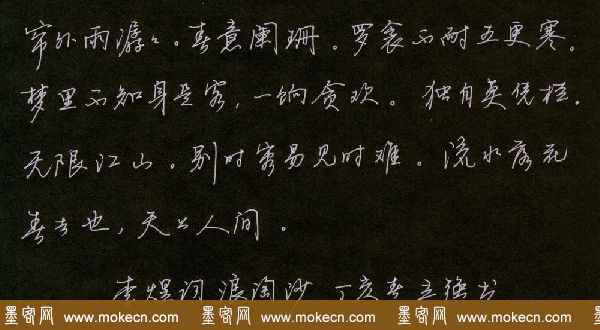 帘外雨潺々。春意阑珊。罗衾不耐五更寒。
梦里不知身是客,一饷贪欢。独自莫凭栏.
无限江山。别时容易见时难。流水落花
春去也,天上人间。
李煜词 浪淘沙 丁亥春 立强书
墨客网 www.mokecn.com 墨客网 www.mokecn.com 墨客网 www.mokecn.com